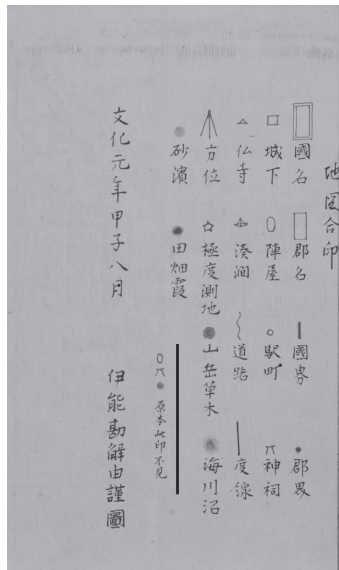 地図合印
國名 郡名 國界 郡界
城下 陣屋 駅町 神祠
仏寺 湊澗 道路 度線
方位 極度測地 山岳草木 海川沼
砂濱 田畑霞
原本此印不見
文化元年甲子八月
伊能勘解由謹圖